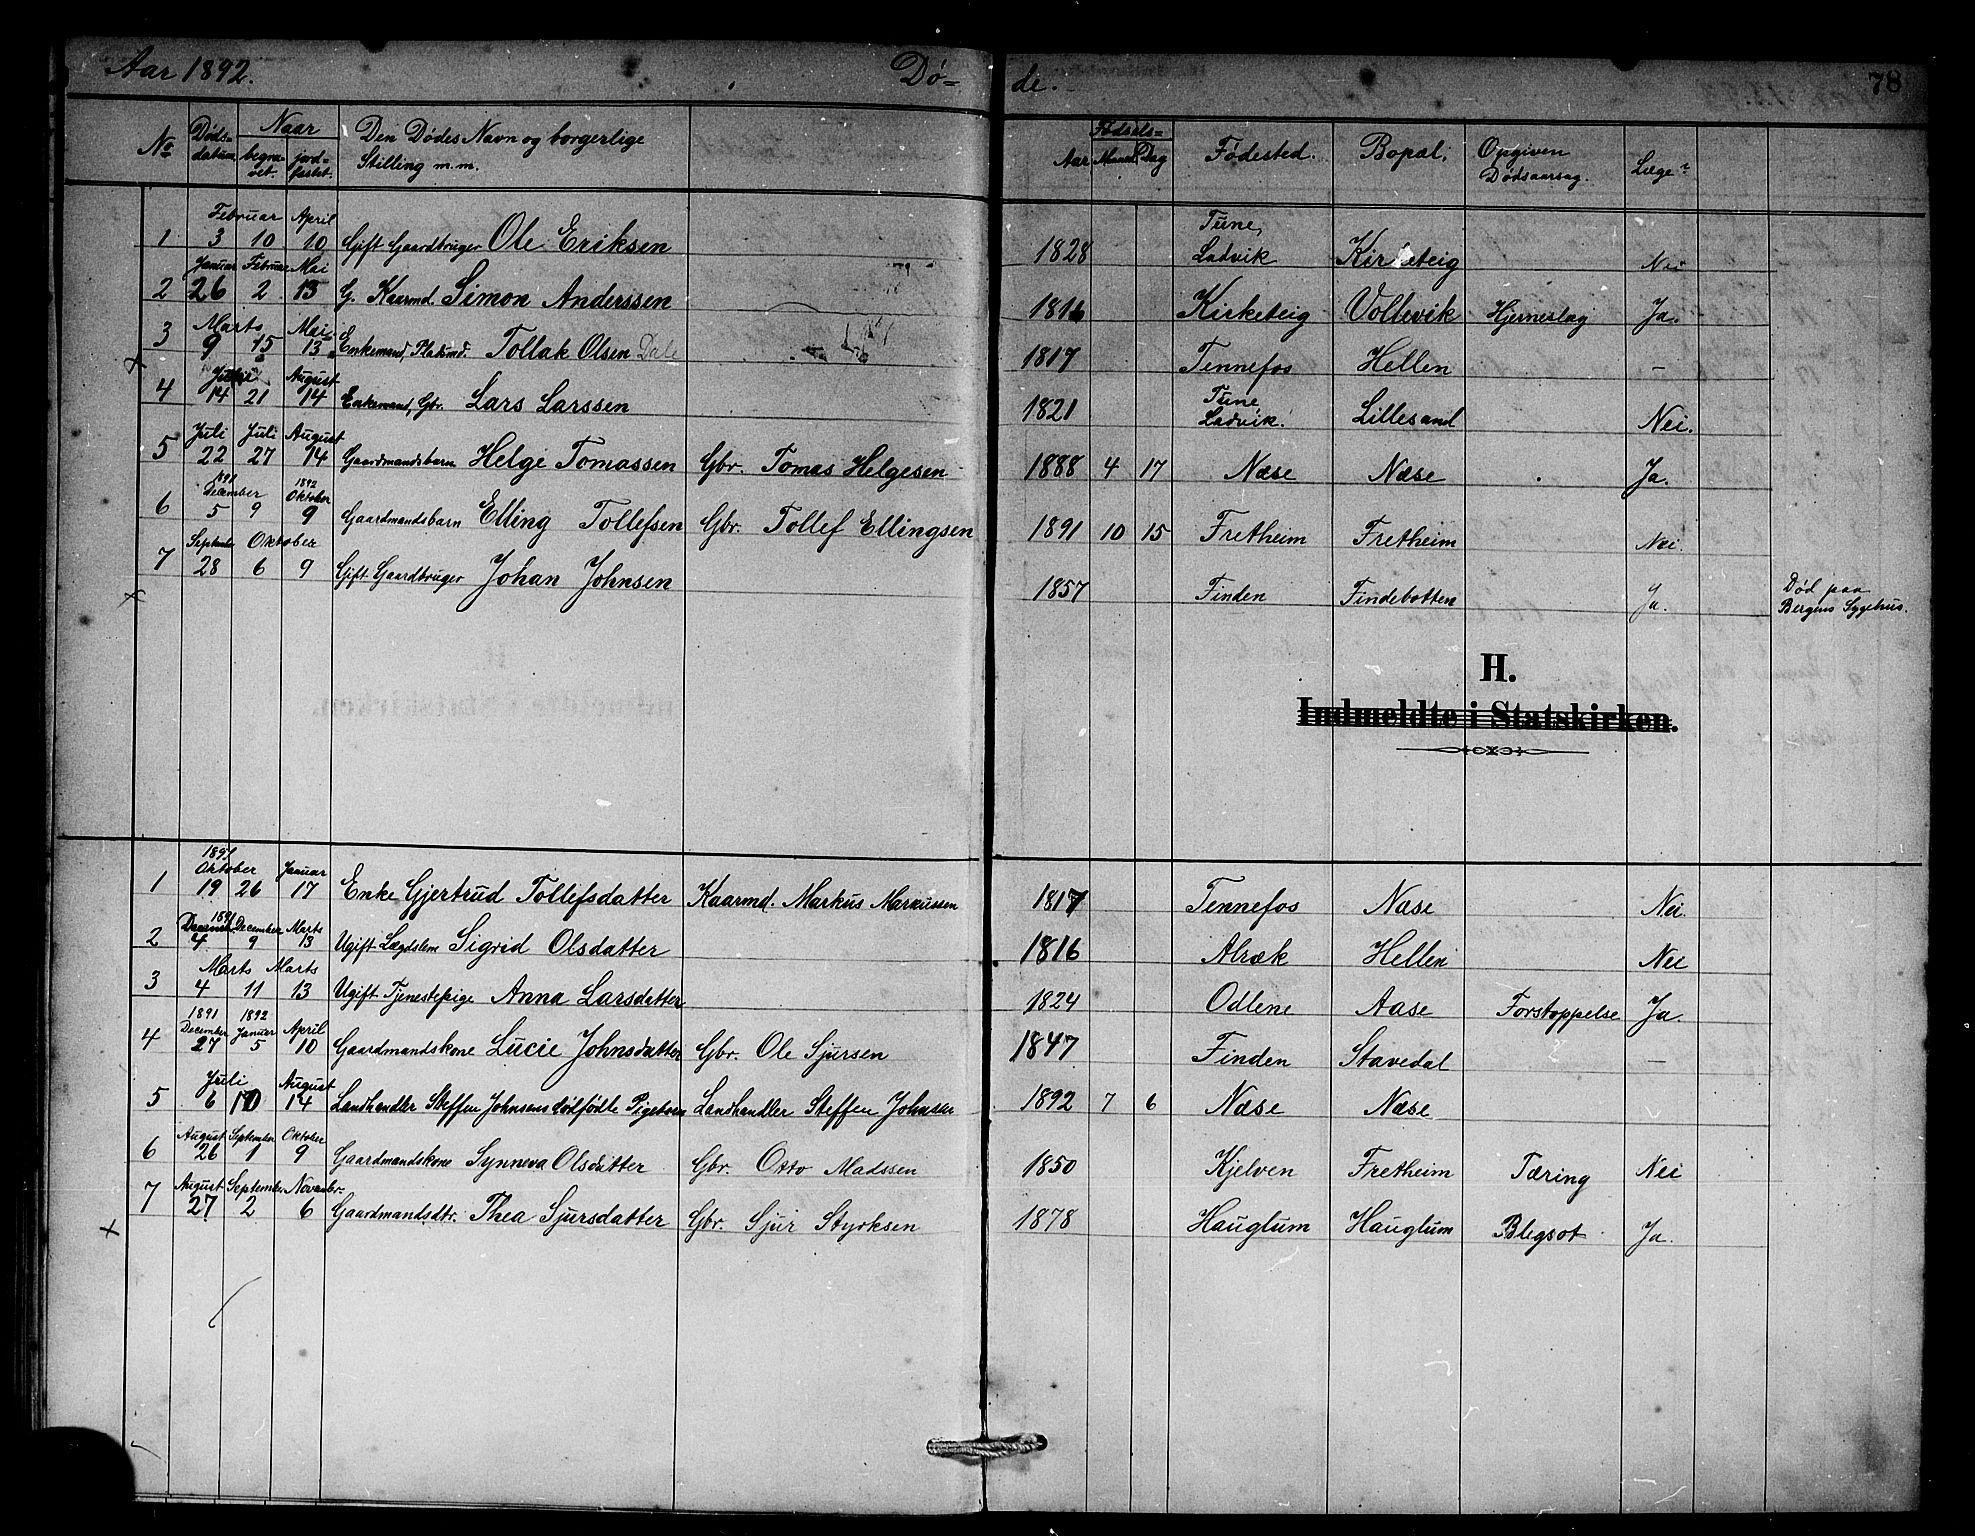 Aar 1892. Dø- de. 78
No Døds-datum. Naar begra-vet. jord-fæstet. Den Dødes Navn og borgerlige Stilling m.m. Fødsels- Aar Maaned Dag Fødested. Bopæl. Opgiven Dødsaarsag. Læge?
1 Februar 3 10 April 10 Gift Gaardbruger Ole Eriksen 1828 Tune, Ladvik Kirketeig Nei
2 Januar 26 Februar 2 Mai 15 G. Kaarmd. Simon Anderssen 1816 Kirketeig Vollevik Hjerneslag Ja.
3 Marts 9 15 Mai 13 Enkemand, Pladsmd. Tollak Olsen Dale 1817 Tennefos Hellen –
4 Juli 14 21 August 14 Enkemand, Gbr. Lars Larssen 1821 Tune Ladvik. Lillesand Nei.
5 Juli 22 Juli 27 August 14 Gaardmandsbarn Helge Tomassen Gbr. Tomas Helgesen 1888 4 17 Næse Næse Ja.
6 1891 December 5 9 1892 Oktober 9 Gaardmandsbarn Elling Tollefsen Gbr. Tollef Ellingsen 1891 10 15 Fretheim Fretheim Nei.
7 September 28 Oktober 6 9 Gift Gaardbruger Johan Johnsen 1857 Finden Findebotten Ja. Død paa Bergens Sygehus.
H.
Indmeldte i Statskirken.
1 1891 Oktober 19 26 Januar 17 Enke Gjertrud Tollefsdatter Kaarmd. Markus Markussen 1817 Tennefos Næse Nei.
2 1891 December 4 December 9 Marts 13 Ugift Lægdslem Sigrid Olsdatter 1816 Alræk Hellen Nei
3 Marts 4 11 Marts 13 Ugift Tjenestepige Anna Larsdatter 1824 Odlene Aase Forstoppelse Ja.
4 1891 December 27 1892 Januar 5 April 10 Gaardmandskone Lucie Johnsdatter Gbr. Ole Sjursen 1847 Finden Stavedal –
5 Juli 6 10 August 14 Landhandler Steffen Johnsens dødfødte Pigebarn Landhandler Steffen Johnsen 1892 7 6 Næse Næse
6 August 26 September 1 Oktober 9 Gaardmandskone Synneva Olsdatter Gbr. Otto Madssen 1850 Kjelven Fretheim Tæring Nei
7 August 27 September 2 Novembr. 6 Gaardmandsdtr. Thea Sjursdatter Gbr. Sjur Styrksen 1878 Hauglum Hauglum Blegsot Ja.